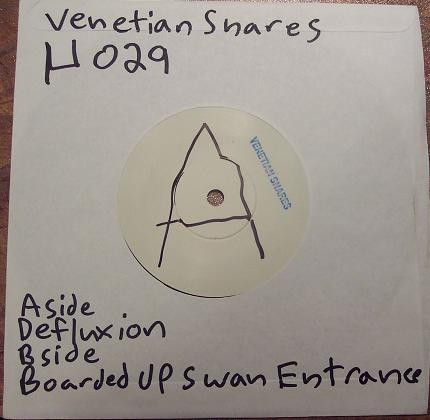 Venetian Snares
µ 029
A
VENETIAN SNARES
Aside
Defluxion
Bside
Boarded UP Swan Entrance